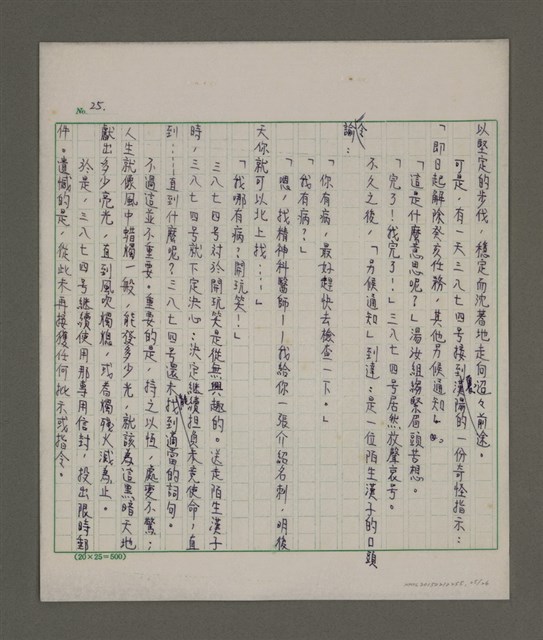 No. 25.
以堅定的步伐，穩定而沈著地走向迢々前途。
可是，有一天三八七四號接到潢裏的一份奇怪指示：
「即日起解除癸亥任務，其他另候通知」。
「這是什麼意思呢？」湯汝組縐緊眉頭苦想。
「完了！我完了！」三八七四號居然放聲哀号。
不久之後，「另候通知」到達：是一位陌生漢子的口頭
諭令：
「你有病，最好趕快去檢查一下。」
「我有病？」
「嗯，找精神科醫師──我給你一張介紹名刺，明後
天你就可以北上找……」
「我哪有病？開玩笑！」
三八七四號对於開玩笑是從無興趣的。送走陌生漢子
時，三八七四號就下定決心：決定繼續担負未竟使命，直
到……直到什麼呢？三八七四號還未找到適當的詞句。
不過這並不重要。重要的是，持之以恆，處变不驚；
人生就像風中蜡燭一般，能發多少光，就該為這黑暗天地
獻出多少亮光，直到風吹燭熄，或者燭殘火滅為止。
於是，三八七四號繼續使用那專用信封，投出限時郵
件。遺憾的是，從此未再接獲任何批示或指令。
(20×25=500)